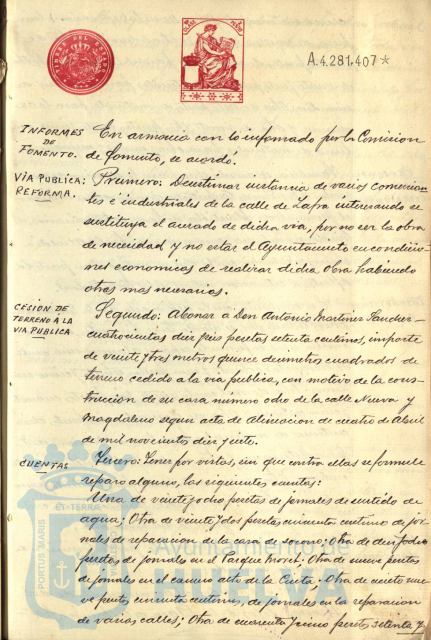 TIMBRE DEL ESTADO
A.4.281.407*
INFORMES DE FOMENTO.
En armonia con lo informado por la Comision
de Fomento, se acordó.
VIA PUBLICA: REFORMA.
Primero: Desestimar instancia de varios comercian-
tes é industriales de la calle de Zafra interesando se
sustituya el acerado de dicha via, por no ser la obra
de necesidad y no estar el Ayuntamiento en condicio-
nes economicas de realizar dicha obra habiendo
otras mas necesarias.
CESIÓN DE TERRENO A LA VIA PUBLICA
Segundo: Abonar a Don Antonio Martinez Sanchez
cuatrocientas diez y seis pesetas setenta centimos, importe
de veinte y tres metros quince decimetros cuadrados de
terreno cedido a la via publica, con motivo de la cons-
trucción de su casa número ocho de la calle Nueva y
Magdalena segun acta de alineacion de cuatro de Abril
de mil novecientos diez y siete.
CUENTAS
Tercero: Tener por vistas, sin que contra ellas se formule
reparo alguno, las siguientes cuentas:
Una de veinte y ocho pesetas de jornales de surtido de
agua; Otra de veinte y dos pesetas cincuenta centimos de jor-
nales de reparacion de la casa de socorro; Otra de diez y ocho
pesetas de jornales en el Parque Moret; Otra de nueve pesetas
de jornales en el camino alto de la Cinta; Otra de ciento nue-
ve pesetas cincuenta centimos, de jornales en la reparacion
de varias calles; Otra de cincuenta y cinco pesetas setenta y
ET TERRÆ
PORTUS MARIS
Ayuntamiento de
HUELVA